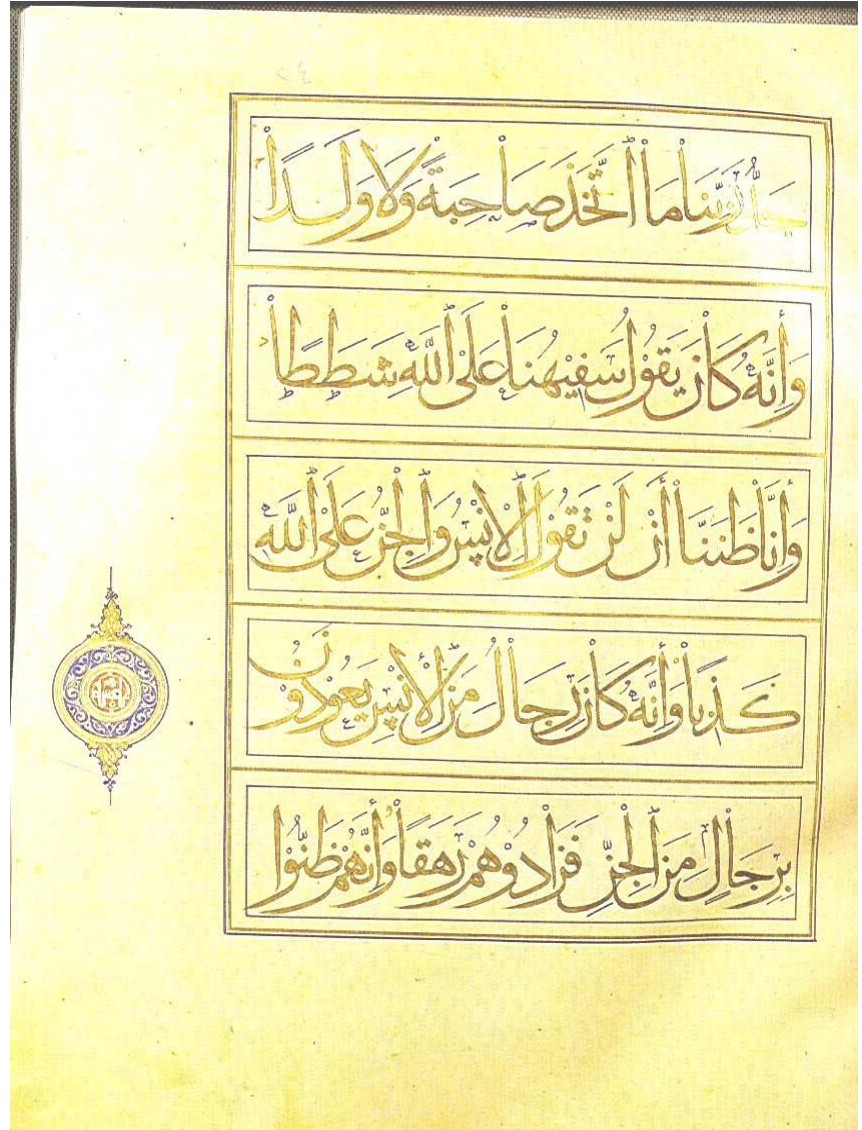 جَدُّ رَبِّنَا مَا اتَّخَذَ صَاحِبَةً وَلَا وَلَدًا
وَأَنَّهُ كَانَ يَقُولُ سَفِيهُنَا عَلَى اللَّهِ شَطَطًا
وَأَنَّا ظَنَنَّا أَنْ لَنْ تَقُولَ الْإِنْسُ وَالْجِنُّ عَلَى اللَّهِ
كَذِبًا وَأَنَّهُ كَانَ رِجَالٌ مِنَ الْإِنْسِ يَعُوذُونَ
بِرِجَالٍ مِنَ الْجِنِّ فَزَادُوهُمْ رَهَقًا وَأَنَّهُمْ ظَنُّوا